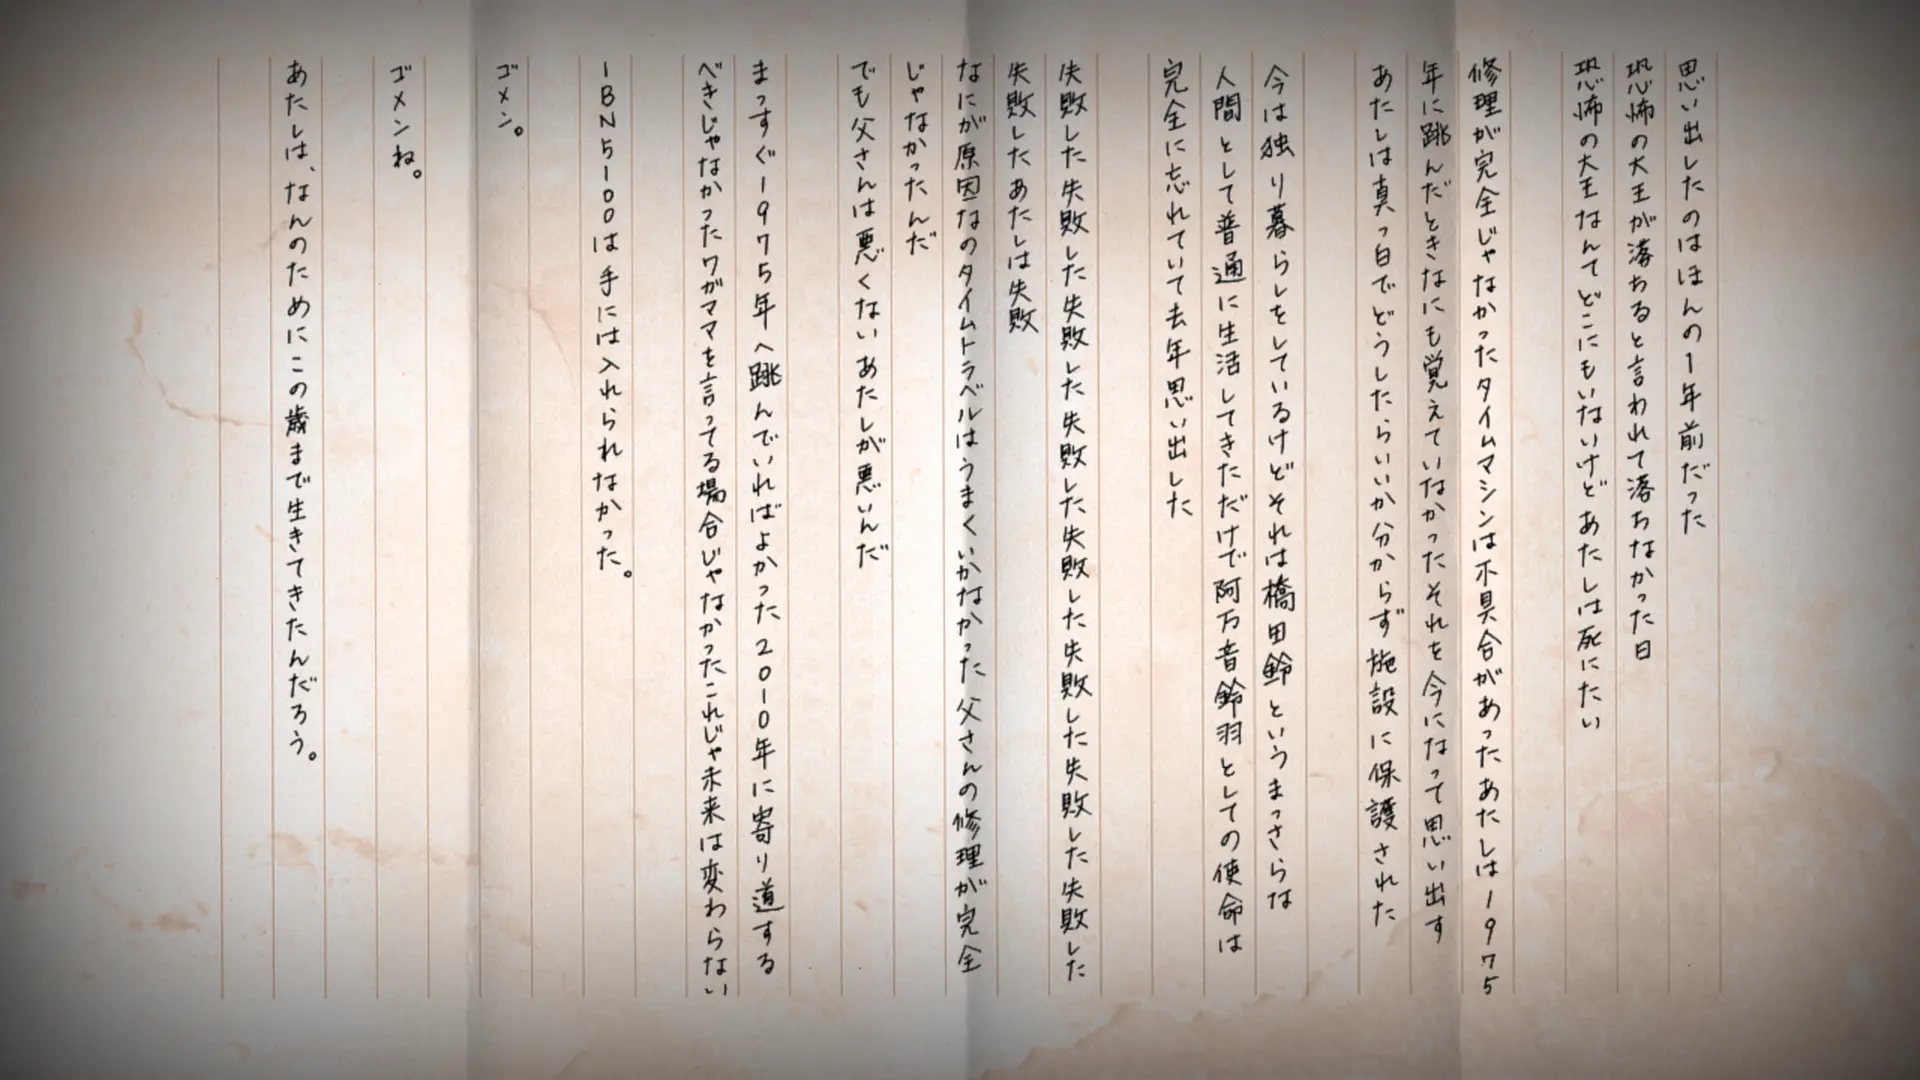 思い出したのはほんの1年前だった
恐怖の大王が落ちると言われて落ちなかった日
恐怖の大王なんてどこにもいないけどあたしは死にたい
修理が完全じゃなかったタイムマシンは不具合があったあたしは1975
年に跳んだときなにも覚えていなかったそれを今になって思い出す
あたしは真っ白でどうしたらいいか分からず施設に保護された
今は独り暮らしをしているけどそれは橋田鈴というまっさらな
人間として普通に生活してきただけで阿万音鈴羽としての使命は
完全に忘れていて去年思い出した
失敗した失敗した失敗した失敗した失敗した失敗した失敗した失敗した
失敗したあたしは失敗
なにが原因なのタイムトラベルはうまくいかなかった父さんの修理が完全
じゃなかったんだ
でも父さんは悪くないあたしが悪いんだ
まっすぐ1975年へ跳んでいればよかった2010年に寄り道する
べきじゃなかったワガママを言ってる場合じゃなかったこれじゃ未来は変わらない
IBN5100は手には入れられなかった。
ゴメン。
ゴメンね。
あたしは、なんのためにこの歳まで生きてきたんだろう。